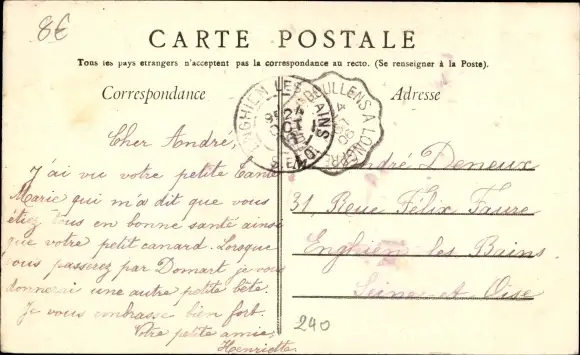 8€
CARTE POSTALE
Tous les pays etrangers n'acceptent pas la correspondance au recto. (Se renseigner à la Poste).
Correspondance
Adresse
ENGHIEN LES BAINS
DOULLENS A LONGPRÉ
Cher André,
J'ai vu votre petite tante
Marie qui m'a dit que vous
étiez tous en bonne santé ainsi
que votre petit canard. Lorsque
vous passerez par Domart je vous
donnerai une autre petite bête.
Je vous embrasse bien fort.
Votre petite amie,
Henriette.
André Deneux
31, Rue Félix Faure
Enghien les Bains
Seine-et-Oise
240